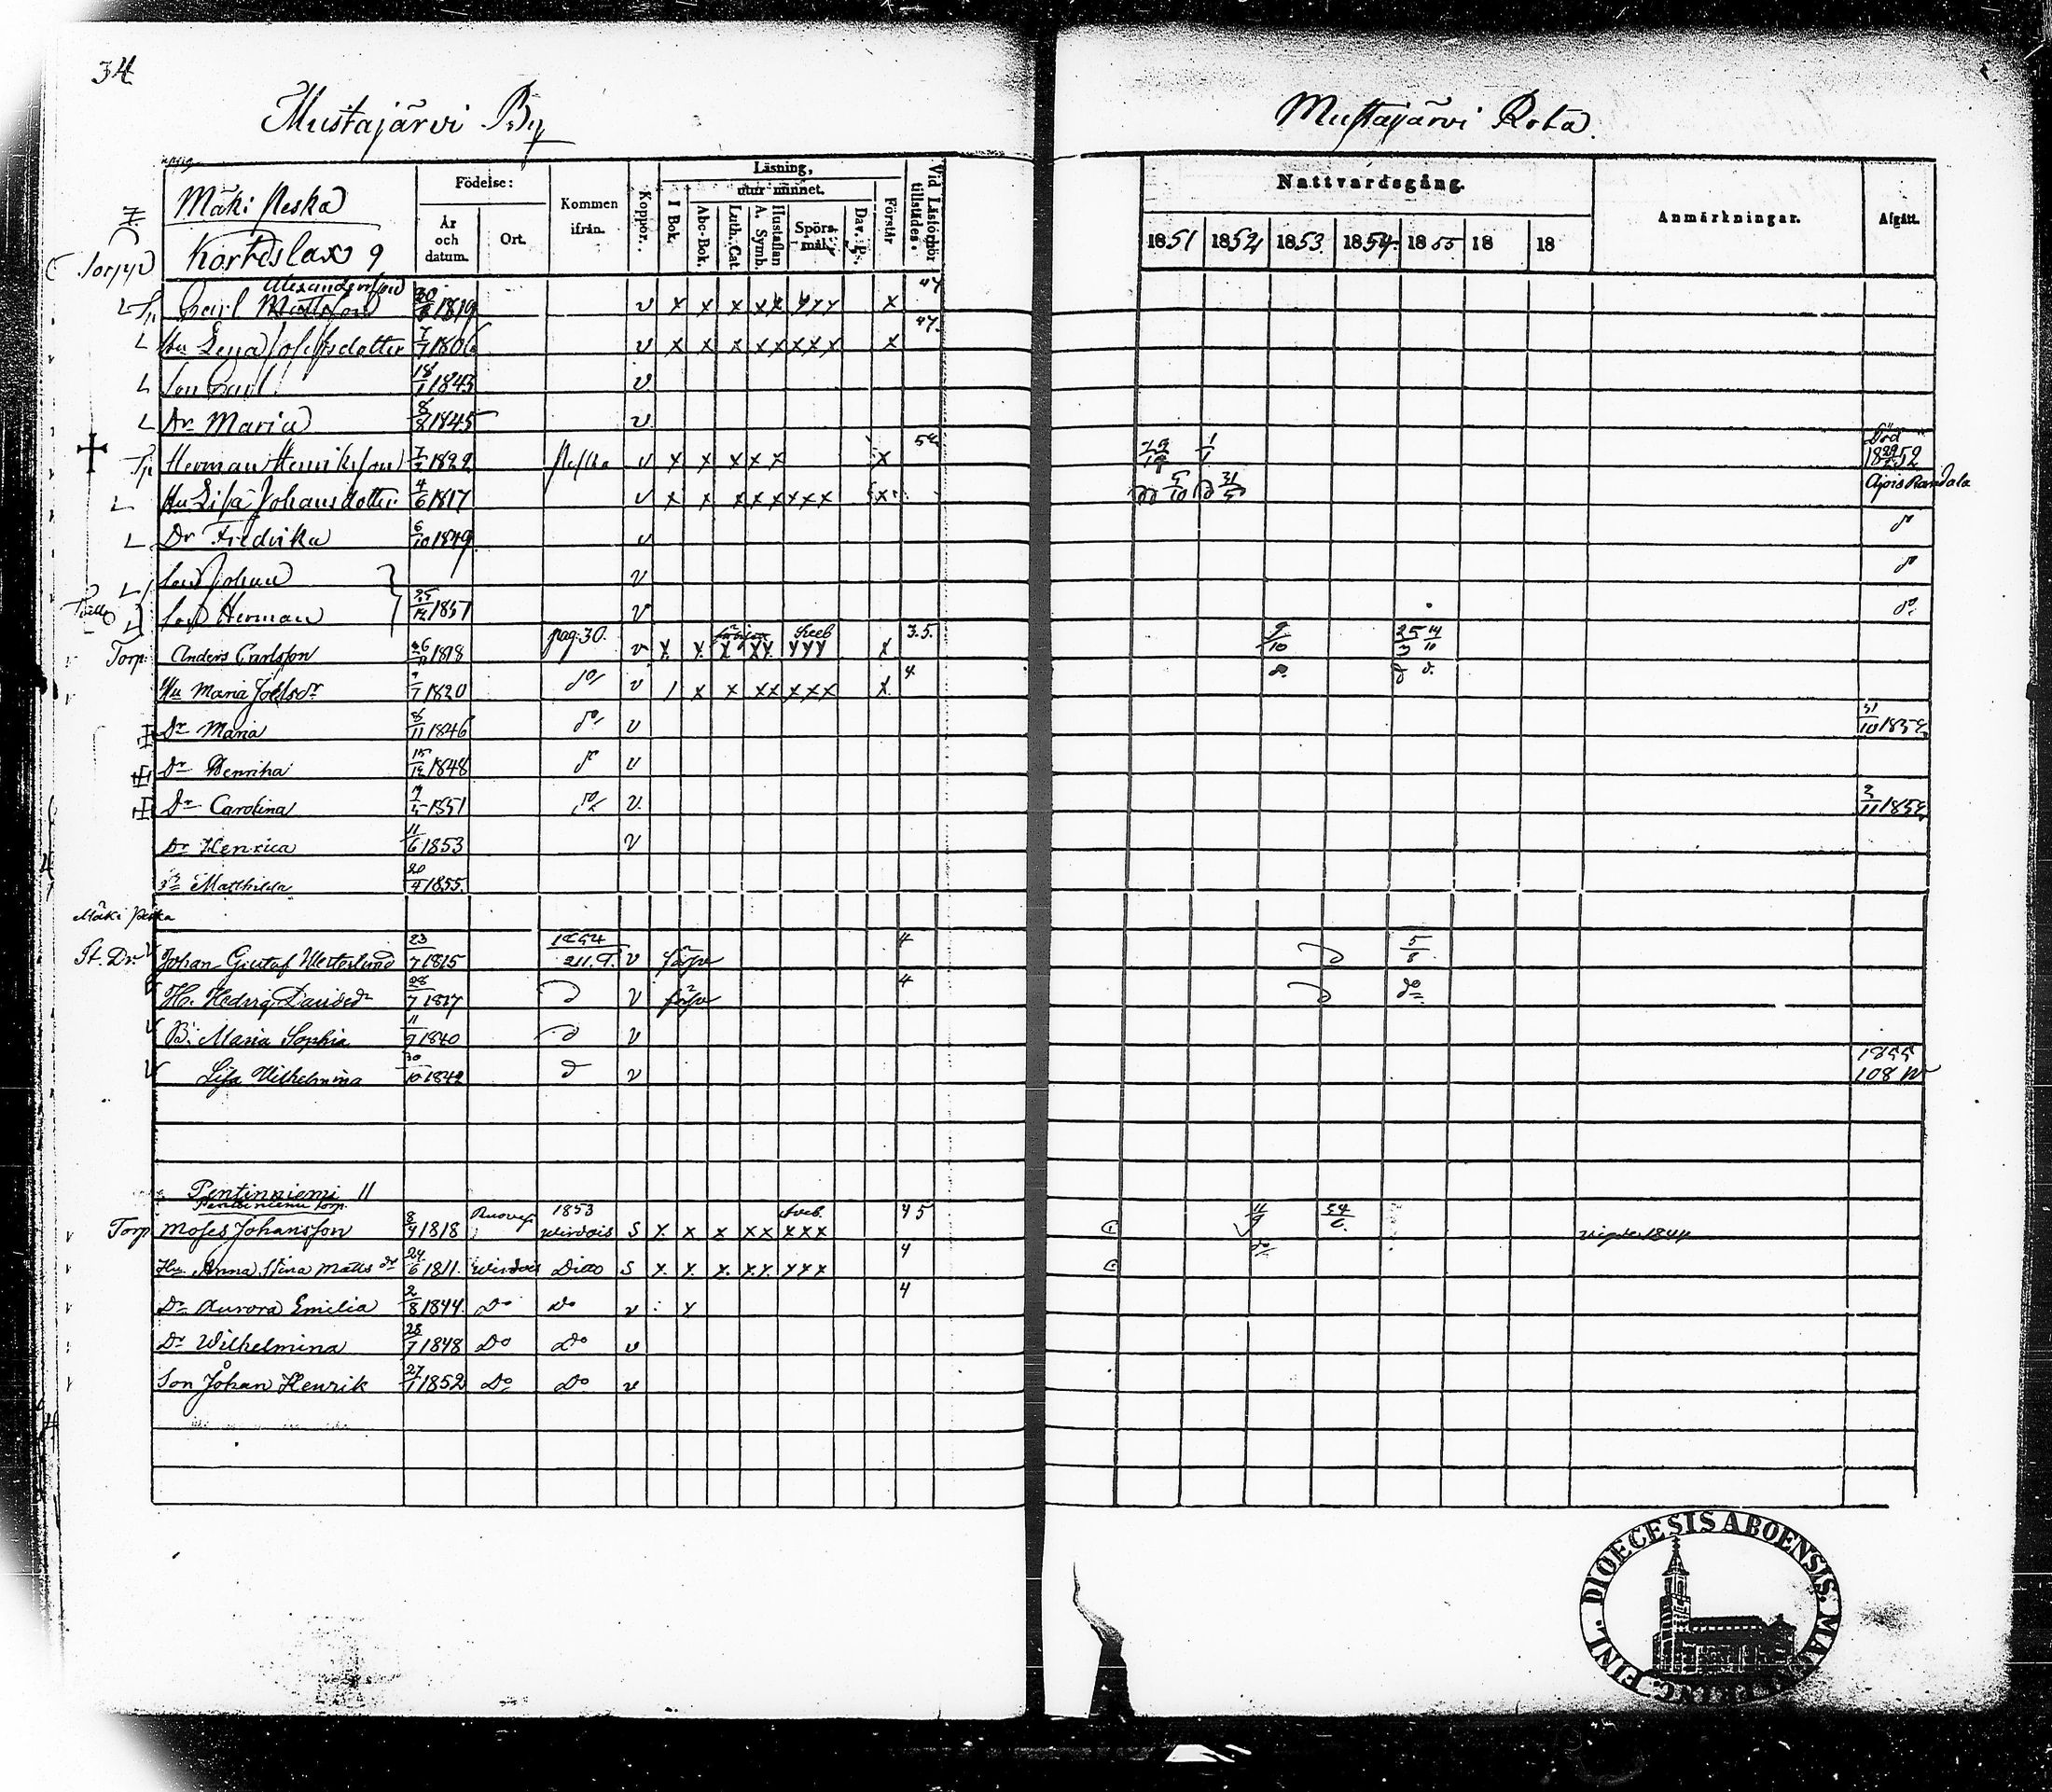 34
Mustajärvi By
Mustajärvi Rota.
Födelse: Läsning, Nattvardsgång.
utur minnet.
Mäki Peska
År och datum. Ort. Kommen ifrån. Koppor. I Bok. Abc-Bok. Luth. Cat. A. Symb. Hustaflan Spörsmål. Dav. P. Förstår Vid Läsförhör tillstädes. 1851 1852 1853 1854 1855 18 18 Anmärkningar. Afgått.
Korteslax 9
Alexandersson
Carl Mattsson 1819 v x x x x x x x x x 47
Hu Lena Josefsdotter 7/7 1806 v x x x x x x x x x 47.
Son Carl 18/1 1843 v
Dr Maria 8/8 1845 v
Herman Henriksson 1822 v x x x x x x 52 1/1 Död 1852
L Hu Lisa Johansdotter 4/6 1817 v x x x x x x x x x 5/10 31/5
L Dr Fredrika 6/10 1849 v do
Son Johan v do
Son Herman 25/12 1851 v do
Torp. Anders Carlsson 1818 pag. 30. v x x x x x x x x x 3.5. 9/10 25/3 14/10
Hu Maria Joelsdr 1820 do v / x x x x x x x x 4 do d d.
Dr Maria 8/11 1846 do v 31/10 1852
Dr Henrika 15/12 1848 do v
Dr Carolina 1851 do v. 2/11 1852
Dr Henrica 11/6 1853 v
Dr Matthilda 20/4 1855.
Mäki Peska
St. Dr Johan Gustaf Westerlund 23/7 1815 1854 211. v 4 5/8
H. Hedvig Davidsdr 28/7 1817 d v 4 do
B: Maria Sophia 11/9 1840 d v
Lisa Wilhelmina 30/10 1842 d v 1855 108
Pentinniemi 11
Pentinniemi torp.
Torp Moses Johansson 8/9 1818 Ruoves 1853 Wirdois S x. x x x x x x x 4 5 11/9 24/6 1844
Hu Anna Stina Mattsdr 24/6 1811. Wirdois Ditto S x. x. x. x x. x x x 4 do
Dr Aurora Emilia 2/8 1844. Do do v x 4
Dr Wilhelmina 28/7 1848 Do do v
Son Johan Henrik 27/1 1852 Do do v
FINL. DIOECESIS ABOENSIS.